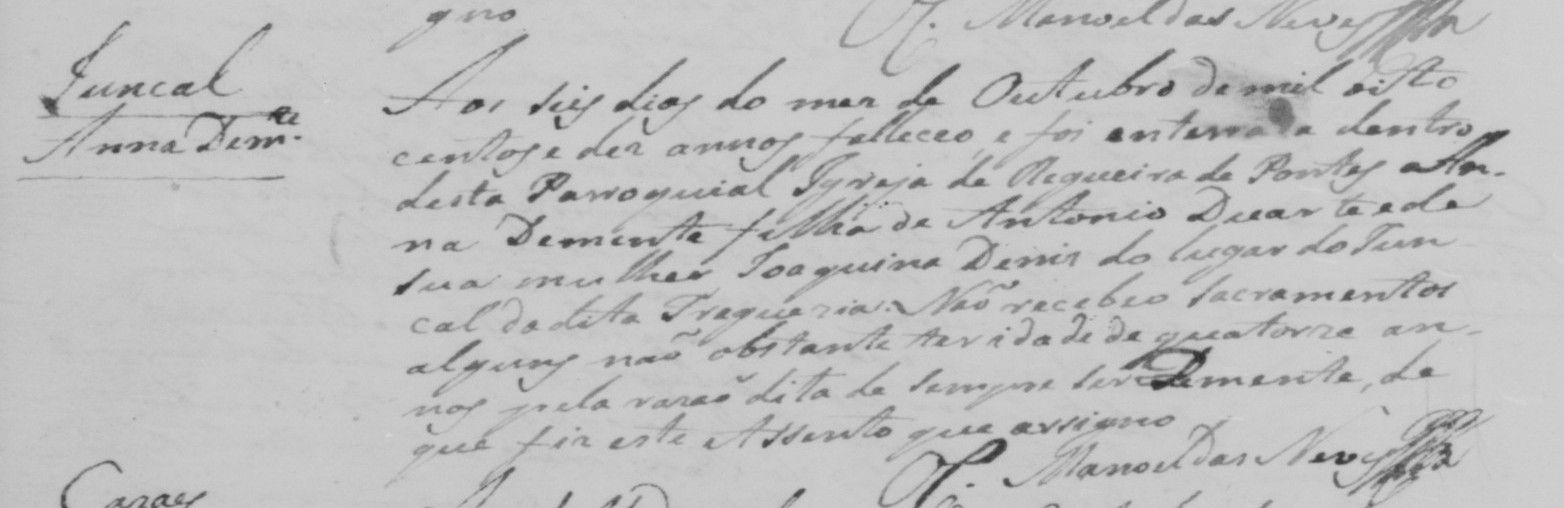 gno
C. Manoel das Neves
Juncal
Anna Dem.te
Aos seis dias do mez de Outubro de mil oisto
centos e dez annos falleceo, e foi enterrada dentro
desta Parroquial Igreja de Regueira de Pontes a An-
na Demente filha de Antonio Duarte e de
sua mulher Joaquina Deniz do lugar do Jun
cal da dita Freguezia. Naõ recebeo sacramentos
alguns naõ obstante ter idade de quatorze an-
nos pela razaõ dita de sempre ser Demente, de
que fiz este Assento que assigno
C. Manoel das Neves